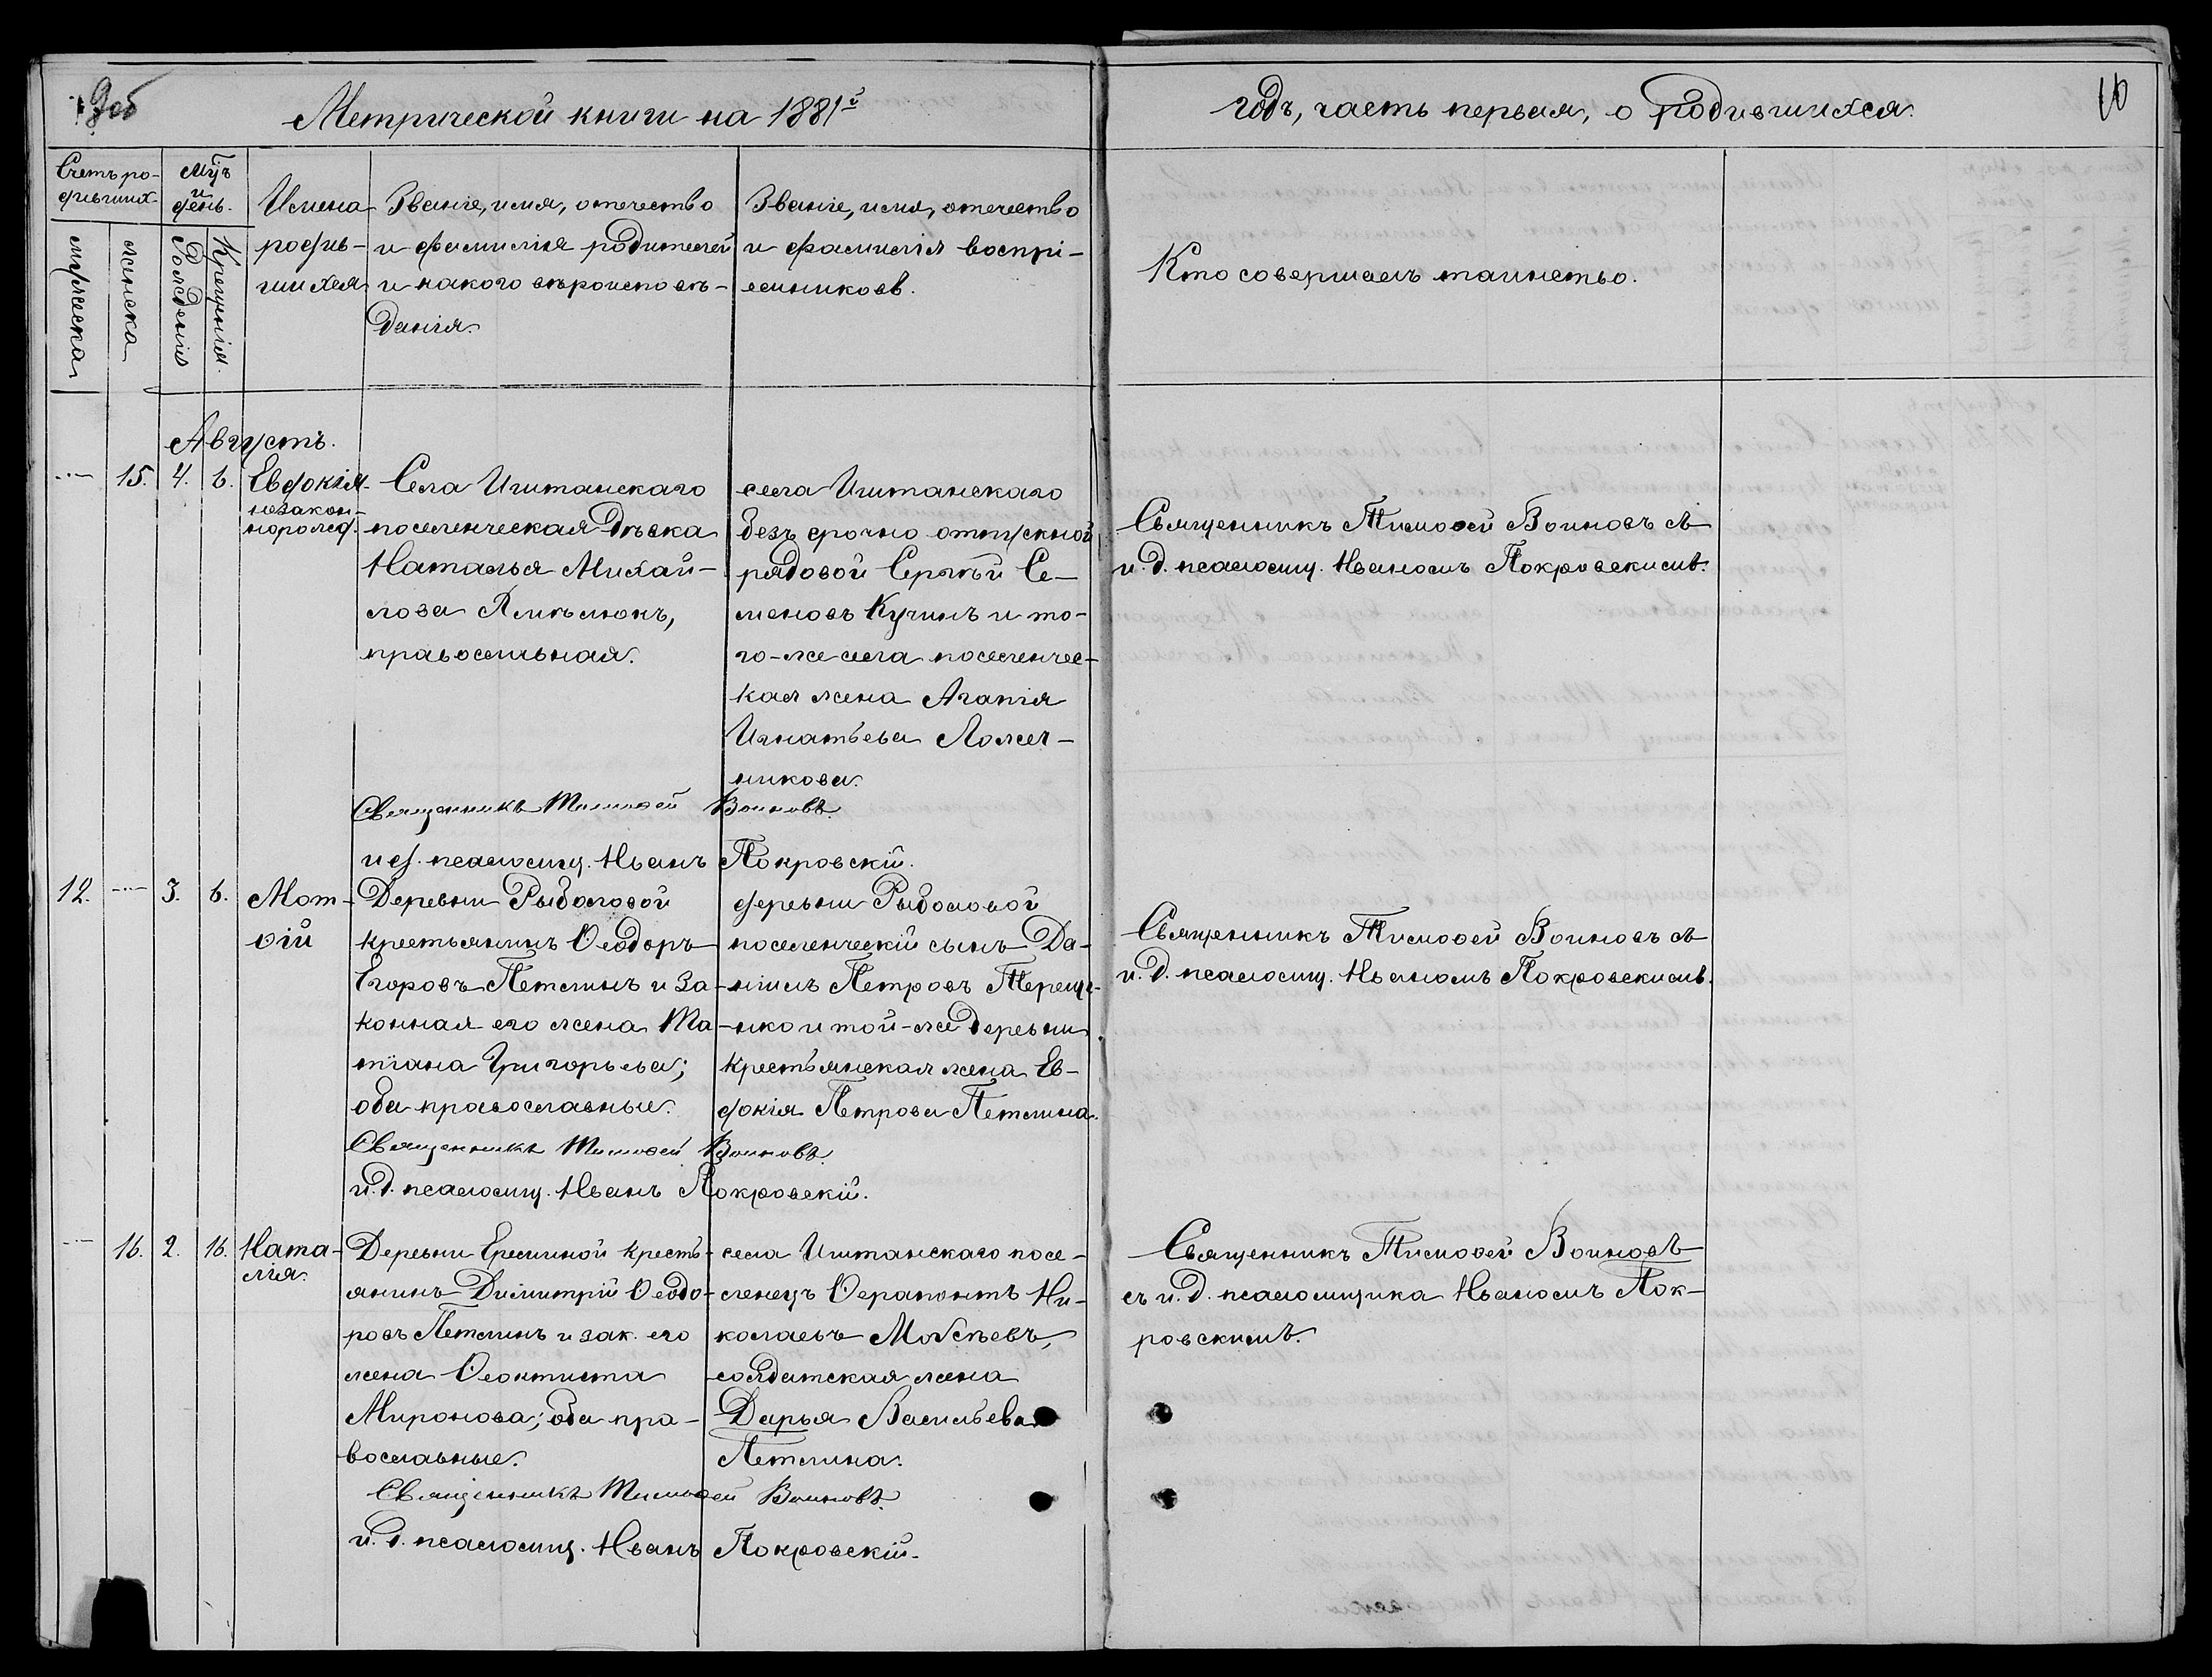 9об
Метрической книги на 1881й
годъ, часть первая, о родившихся.
10
Счетъ ро-
дившихъ
Мцъ
и
день.
мужеска
женска
Рожденія
Крещенія.
Имена
родив-
шихся
Званіе, имя, отечество
и фамилія родителей
и какого вѣроисповѣ-
данія.
Званіе, имя, отечество
и фамилія воспрі-
емниковъ.
Кто совершалъ таинство.
Августъ.
15. 4. 6. Евдокія
незакон-
норожд.
Села Иштанскаго
поселенческая дѣвка
Наталья Михай-
лова
православная.
села Иштанскаго
безсрочно отпускной
рядовой Сергѣй Се-
меновъ Кучинъ и то-
го-же села поселенчес-
кая жена Агапія
Игнатьева Ложе-
никова.
Священникъ Тимофей Воиновъ съ
и. д. псаломщ. Иваномъ Покровскимъ.
Священникъ Тимофей Воиновъ.
и д. псаломщ. Иванъ Покровскій.
12. 3. 6. Мат-
ѳій
Деревни Рыболовой
крестьянинъ Ѳеодоръ
Егоровъ Петлинъ и за-
конная его жена Та-
тіана Григорьева;
оба православные.
деревни Рыболовой
поселенческій сынъ Да-
ніилъ Петровъ Тереще-
нко и той-же деревни
крестьянская жена Ев-
докія Петрова Петлина.
Священникъ Тимоѳей Воиновъ съ
и. д. псаломщ. Иваномъ Покровскимъ.
Священникъ Тимоѳей Воиновъ.
и. д. псаломщ. Иванъ Покровскій.
16. 2. 16. Ната-
лія.
Деревни Ерлиной кресть-
янинъ Димитрій Ѳеодо-
ровъ Петлинъ и зак. его
жена Ѳеоктиста
Миронова; оба пра-
вославные.
села Иштанскаго посе-
ленецъ Ѳерапонтъ Ни-
колаевъ
солдатская жена
Дарья Васильева
Петлина.
Священникъ Тимоѳей Воиновъ
съ и. д. псаломщика Иваномъ Пок-
ровскимъ.
Священникъ Тимоѳей Воиновъ.
и. д. псаломщ. Иванъ Покровскій.